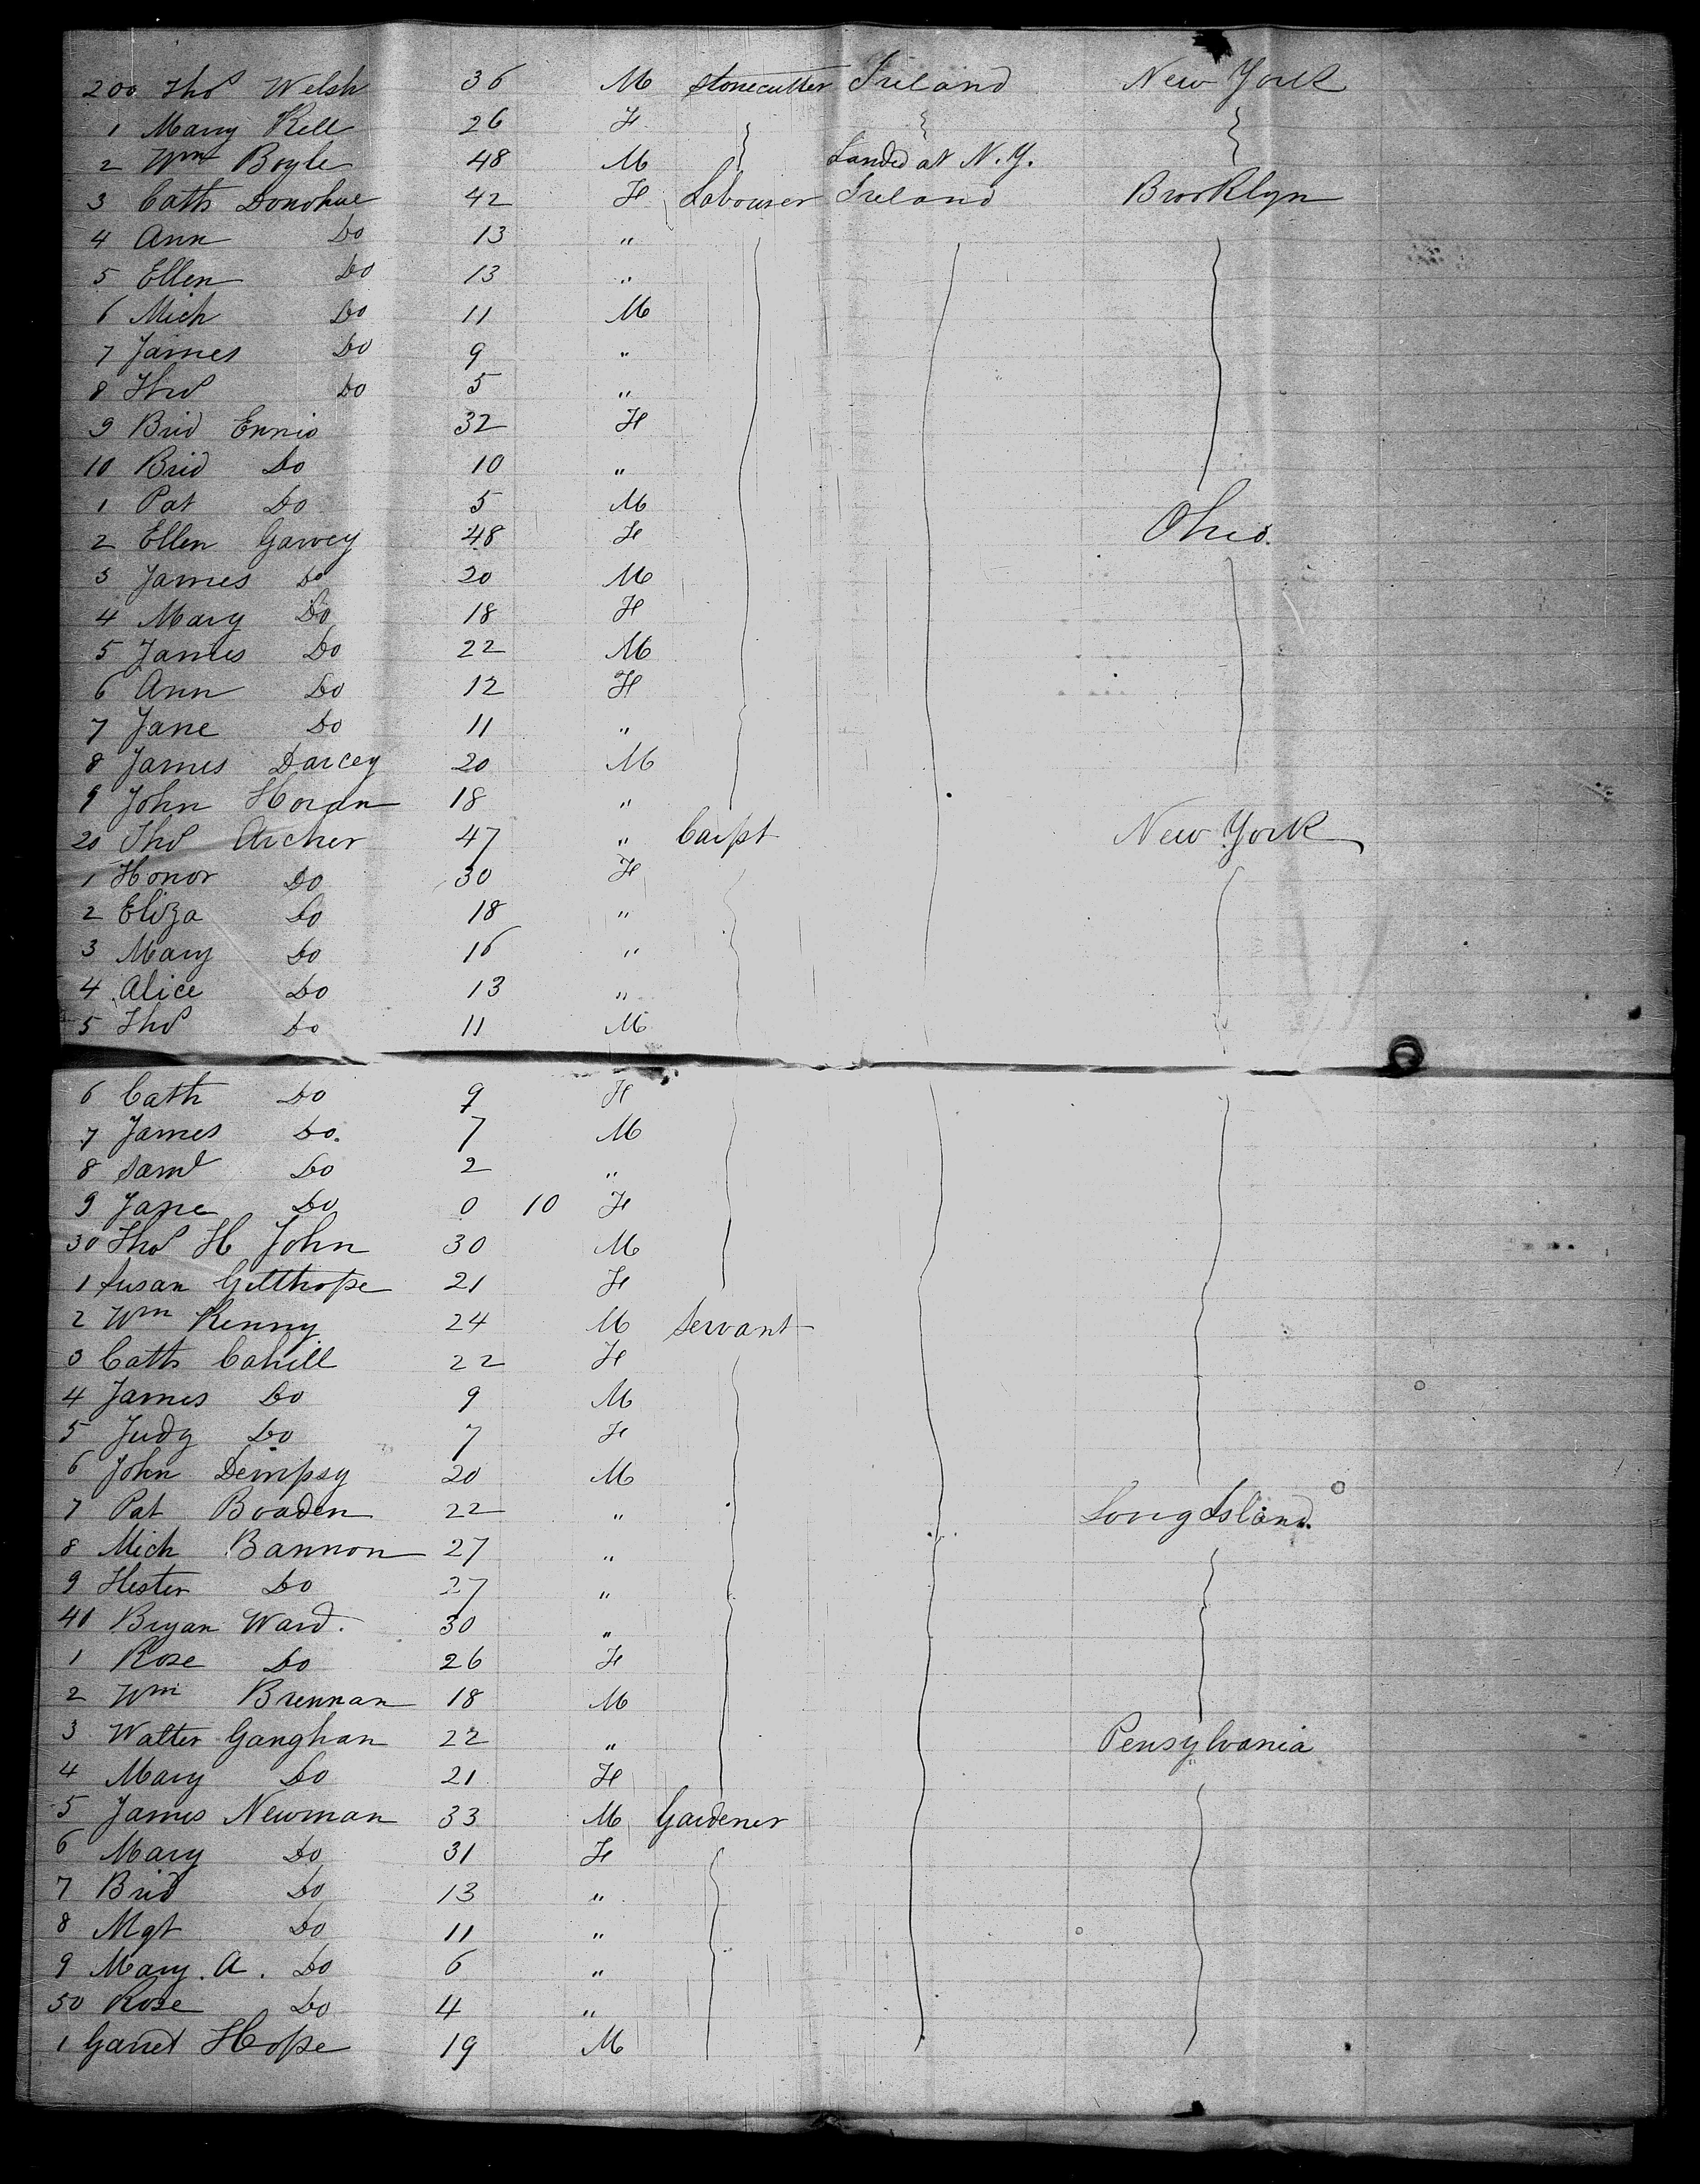 200 Thos Welsh 36 M Stonecutter Ireland New York
1 Mary Kell 26 F
2 Wm Boyle 48 M Landed at N.Y.
3 Cath Donohue 42 F Labourer Ireland Brooklyn
4 Ann Do 13 "
5 Ellen Do 13 "
6 Mich Do 11 M
7 James Do 9 "
8 Thos Do 5 "
9 Brid Ennis 32 F
10 Brid Do 10 "
1 Pat Do 5 M
2 Ellen Garvey 48 F Ohio.
3 James Do 20 M
4 Mary Do 18 F
5 James Do 22 M
6 Ann Do 12 F
7 Jane Do 11 "
8 James Darcey 20 M
9 John Horan 18 "
20 Thos Archer 47 " Carpt New York
1 Honor Do 30 F
2 Eliza Do 18 "
3 Mary Do 16 "
4 Alice Do 13 "
5 Thos Do 11 M
6 Cath Do 9 F
7 James Do. 7 M
8 Saml Do 2 "
9 Jane Do 0 10 F
30 Thos H John 30 M
1 Susan Gilthorpe 21 F
2 Wm Kenny 24 M Servant
3 Cath Cahill 22 F
4 James Do 9 M
5 Judy Do 7 F
6 John Dempsy 20 M
7 Pat Boaden 22 " Long Island.
8 Mich Bannon 27 "
9 Hester Do 27 "
40 Bryan Ward. 30 "
1 Rose Do 26 F
2 Wm Brennan 18 M
3 Walter Ganghan 22 " Pensylvania
4 Mary Do 21 F
5 James Newman 33 M Gardener
6 Mary Do 31 F
7 Brid Do 13 "
8 Mgt Do 11 "
9 Mary. A. Do 6 "
50 Rose Do 4 "
1 Garret Hope 19 M